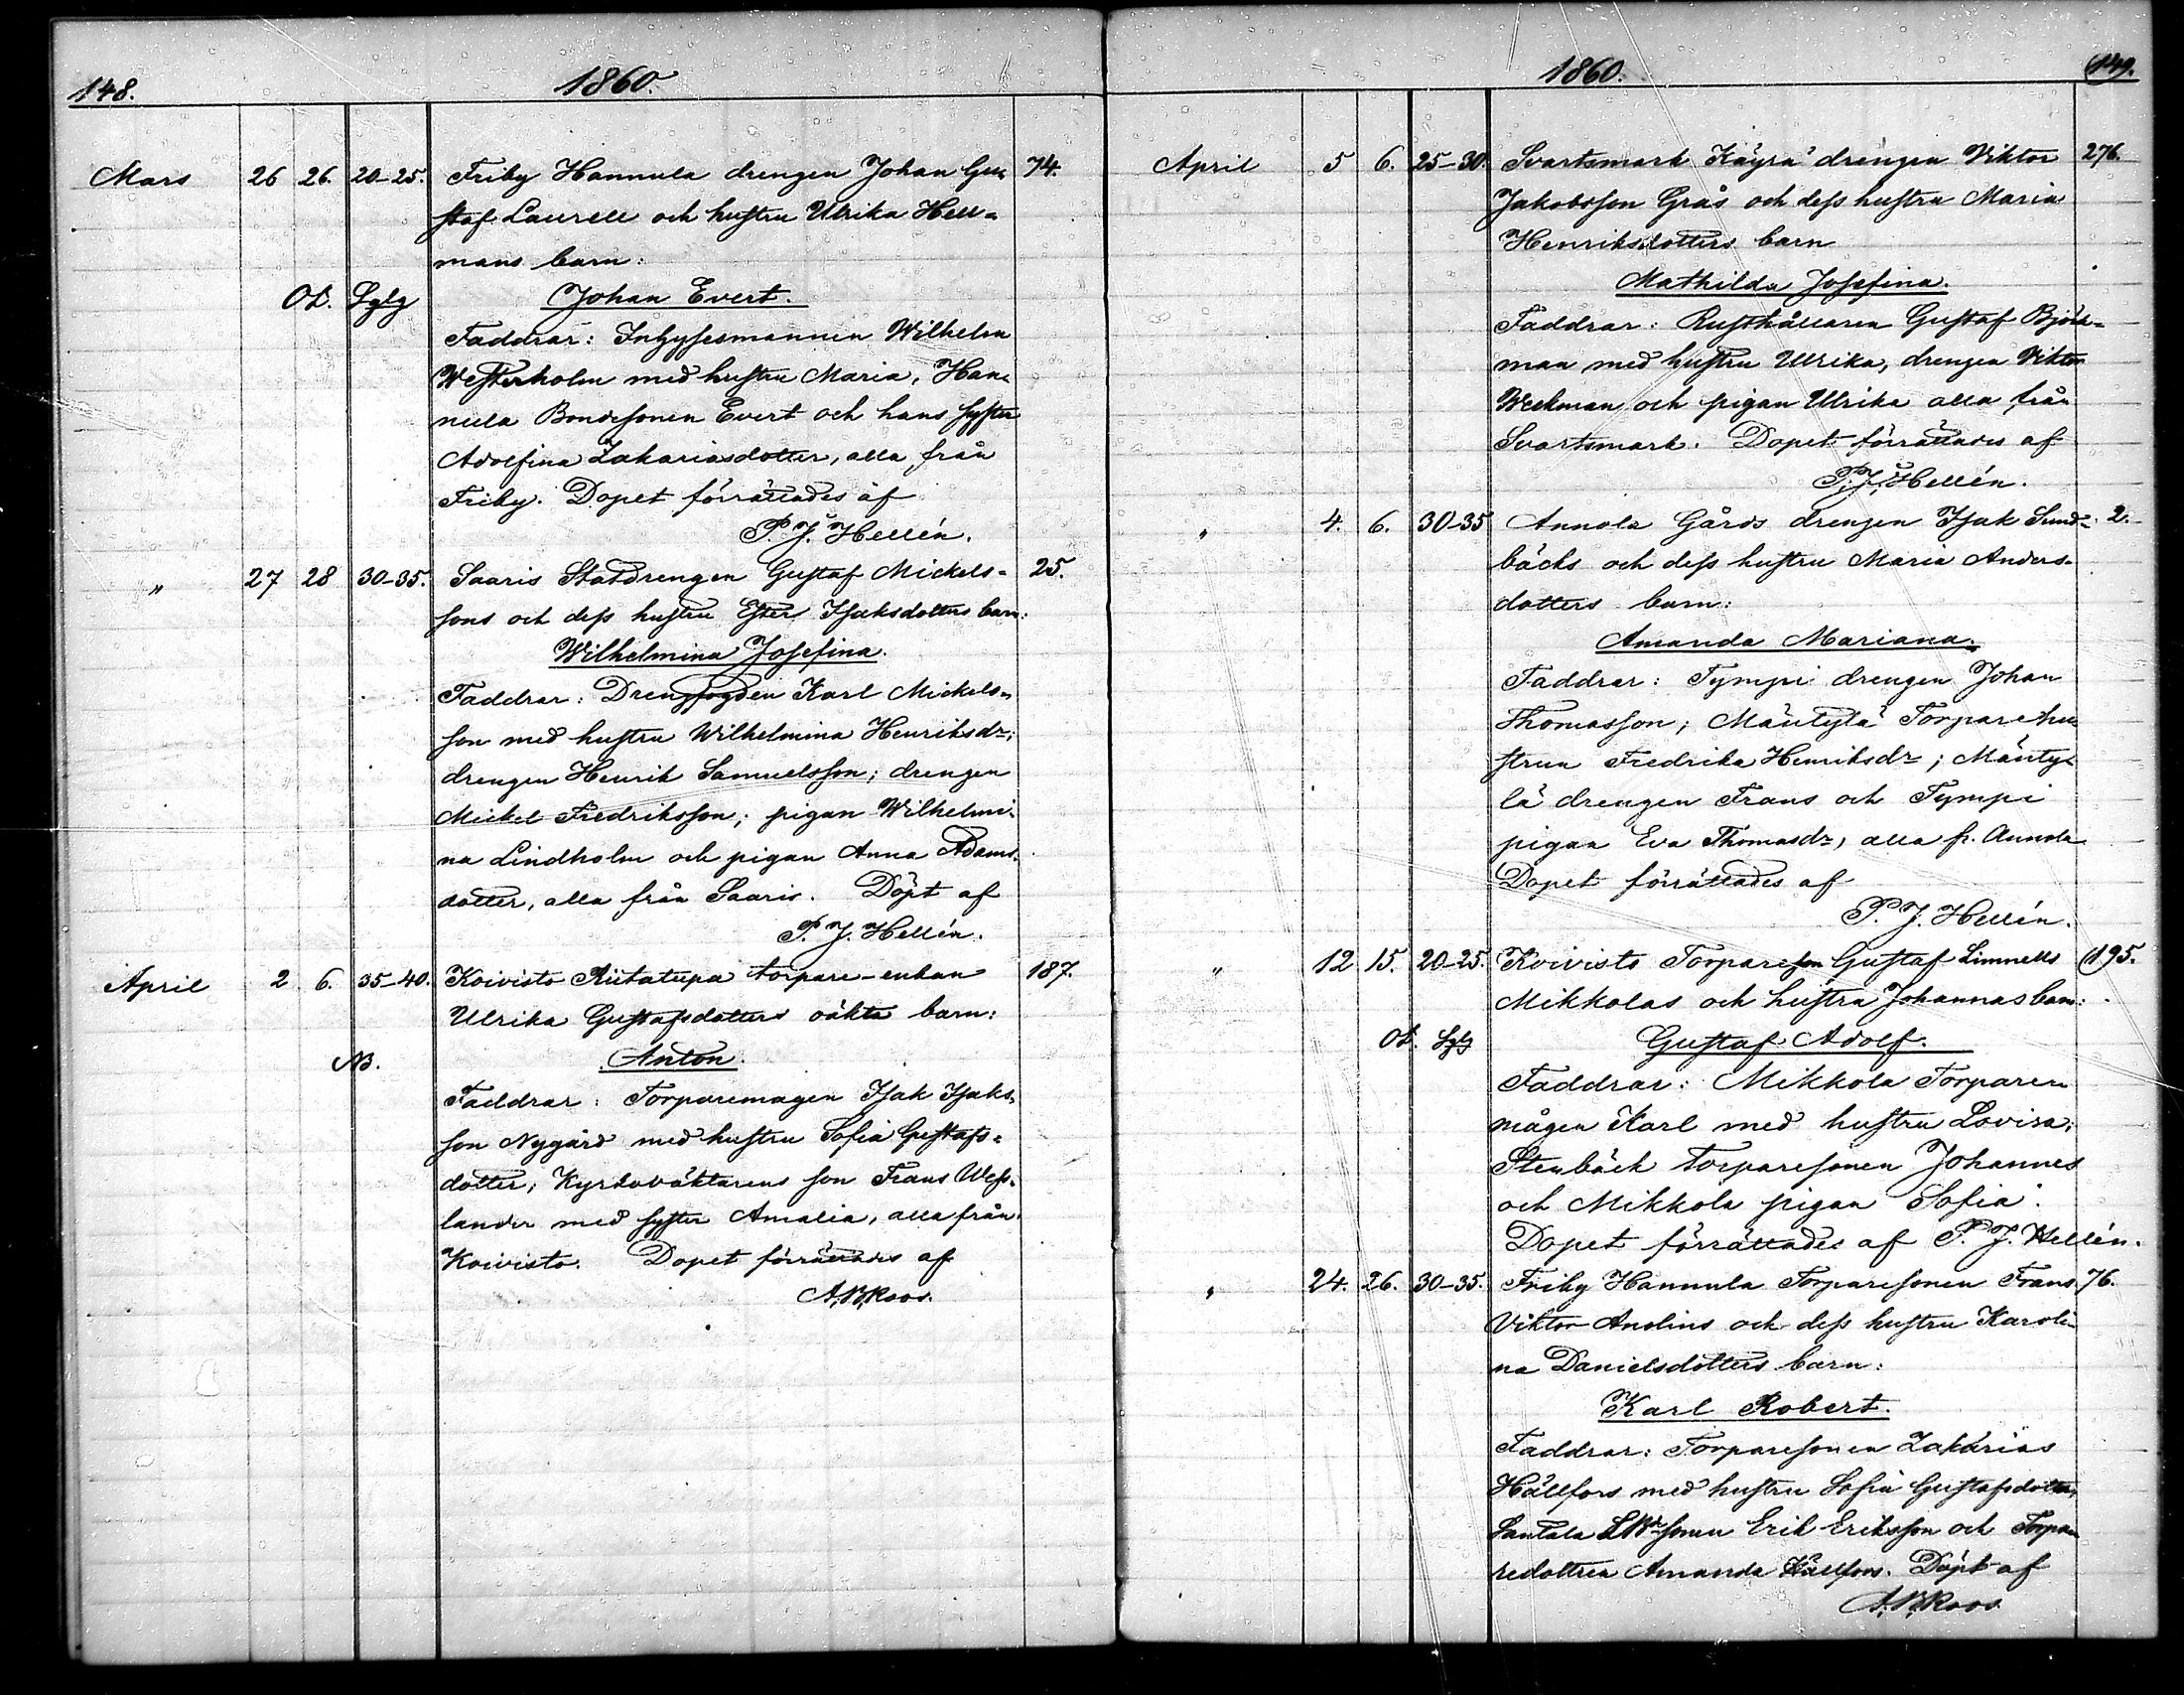 148. 1860.
Mars 26 26. 20-25. Friby Hannula drengen Johan Gu- 74.
staf Laurell och hustru Ulrika Hell-
mans barn:
Od. Sglg Johan Evert.
Faddrar: Inhysesmannen Wilhelm
Westerholm med hustru Maria, Han-
nula Bondesonen Evert och hans syster
Adolfina Zakariasdotter, alla från
Friby. Dopet förrättades af
P. J. Hellén.
" 27 28 30-35. Saaris Statdrengen Gustaf Mickels- 25.
sons och dess hustru Ester Isaksdotters barn:
Wilhelmina Josefina.
Faddrar: Drengfogden Karl Mickels-
son med hustru Wilhelmina Henriksdr;
drengen Henrik Samuelsson; drengen
Mickel Fredriksson; pigan Wilhelmi-
na Lindholm och pigan Anna Adams-
dotter, alla från Saaris. Döpt af
P. J. Hellén.
April 2 6. 35-40. Koivisto Riitatupa torpare-enkan 187.
Ulrika Gustafsdotters oäkta barn:
NB. Anton.
Faddrar: Torparemågen Isak Isaks-
son Nygård med hustru Sofia Gustafs-
dotter; Kyrkoväktarens son Frans Wess-
lander med syster Amalia, alla från
Koivisto. Dopet förrättades af
A. W. Roos.
1860. 149.
April 5 6. 25-30. Svartsmark Käyrä drengen Viktor 276.
Jakobsson Grås och dess hustru Maria
Henriksdotters barn
Mathilda Josefina.
Faddrar: Rusthållaren Gustaf Björk-
man med hustru Ulrika, drengen Viktor
Weckman och pigan Ulrika alla från
Svartsmark. Dopet förrättades af
P. J. Hellén.
" 4. 6. 30-35 Annola Gårds drengen Isak Sund- 2.
bäcks och dess hustru Maria Anders-
dotters barn:
Amanda Mariana.
Faddrar: Tympi drengen Johan
Thomasson; Mäntylä Torparehu-
strun Fredrika Henriksdr; Mänty-
lä drengen Frans och Tympi
pigan Eva Thomasdr, alla fr. Annola
Dopet förrättades af
P. J. Hellén.
" 12 15. 20-25. Koivisto Torpareson Gustaf Limnells 195.
Mikkolas och hustru Johannas barn:
Od. Sglg Gustaf Adolf.
Faddrar: Mikkola Torpare
mågen Karl med hustru Lovisa;
Stenbäck torparesonen Johannes
och Mikkola pigan Sofia.
Dopet förrättades af P. J. Hellén.
" 24. 26. 30-35. Friby Hannula Torparesonen Frans 76.
Viktor Anolins och dess hustru Karoli-
na Danielsdotters barn:
Karl Robert.
Faddrar: Torparesonen Zakarias
Hällfors med hustru Sofia Gustafsdotter,
Santala sonen Erik Eriksson och Torpa-
redottren Amanda Hällfors. Döpt af
A. W. Roos.